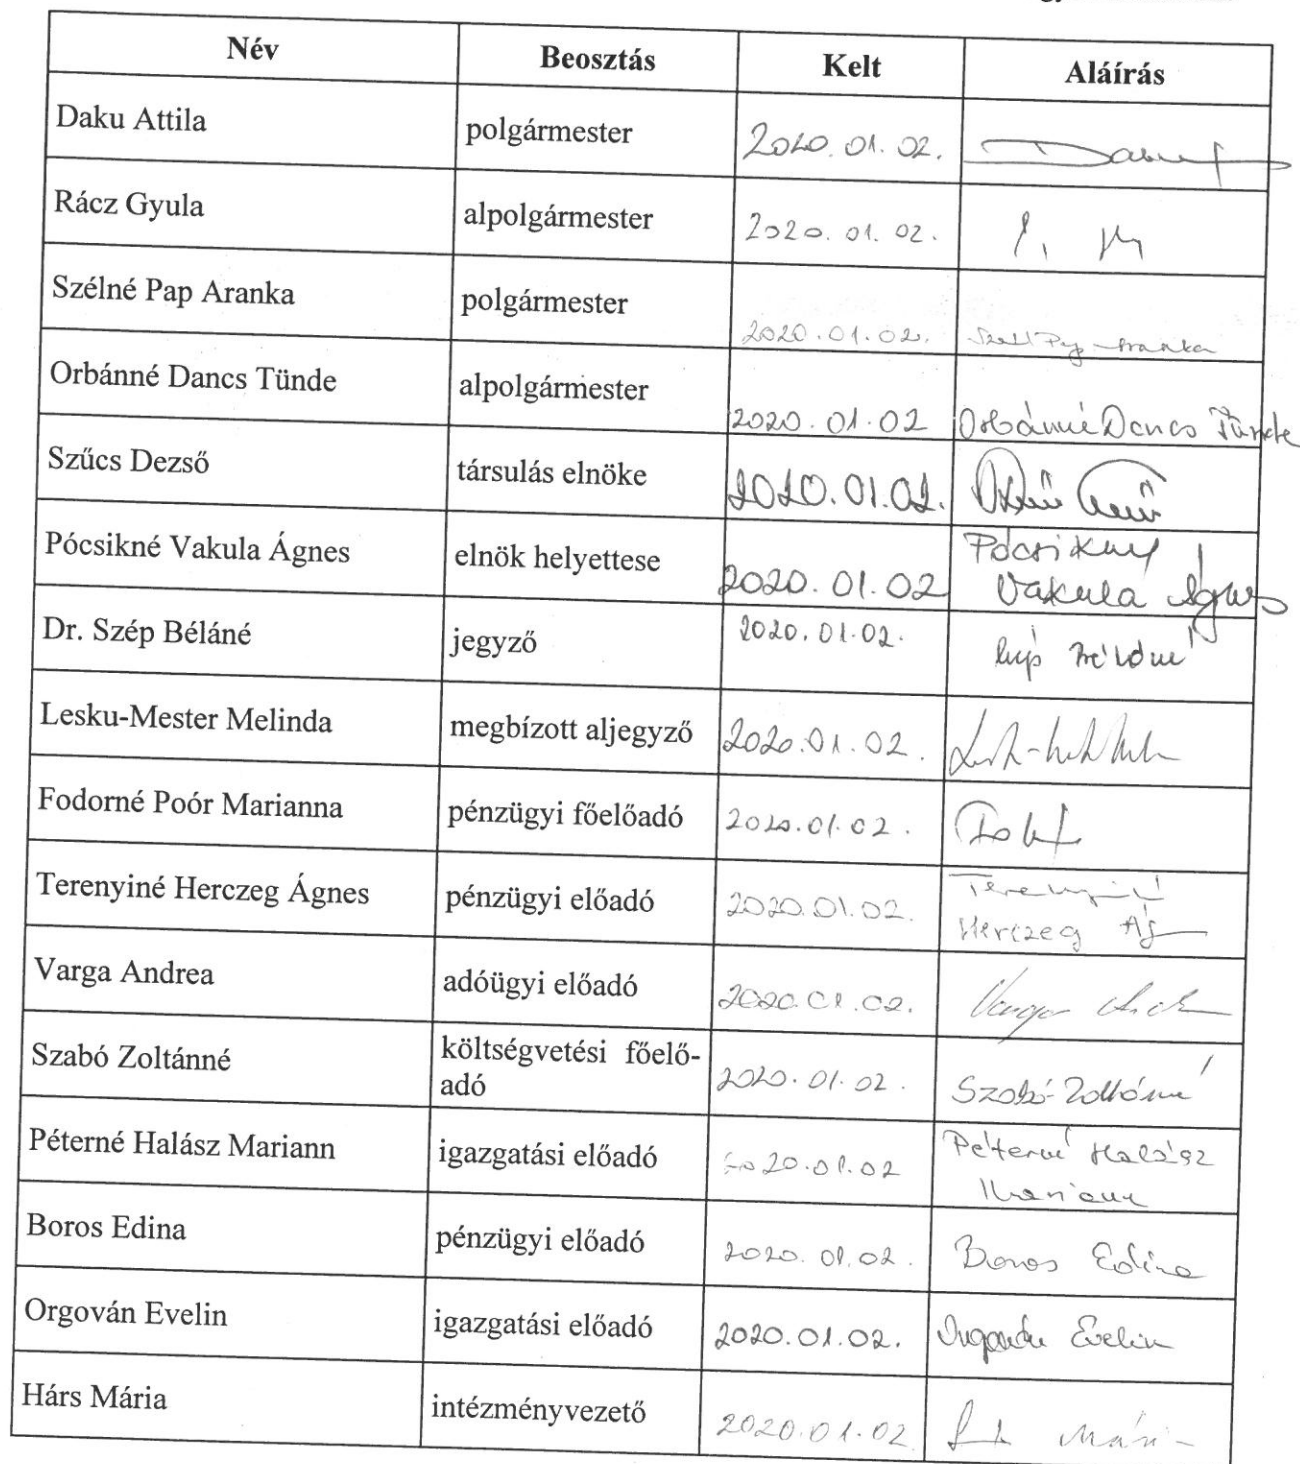 Név Beosztás Kelt Aláírás
Daku Attila polgármester 2020.01.02.
Rácz Gyula alpolgármester 2020.01.02.
Szélné Pap Aranka polgármester 2020.01.02. Aranka
Orbánné Dancs Tünde alpolgármester 2020.01.02 Orbánné Dancs Tünde
Szűcs Dezső társulás elnöke 2020.01.02.
Pócsikné Vakula Ágnes elnök helyettese 2020.01.02 Pócsikné
Vakula Ágnes
Dr. Szép Béláné jegyző 2020.01.02. Béláné
Lesku-Mester Melinda megbízott aljegyző 2020.01.02.
Fodorné Poór Marianna pénzügyi főelőadó 2020.01.02.
Terenyiné Herczeg Ágnes pénzügyi előadó 2020.01.02. Terenyiné
Herczeg Ág
Varga Andrea adóügyi előadó 2020.01.02. Varga
Szabó Zoltánné költségvetési főelő-
adó 2020.01.02. Szabó Zoltánné
Péterné Halász Mariann igazgatási előadó 2020.01.02 Péterné Halász
Mariann
Boros Edina pénzügyi előadó 2020.01.02. Boros Edina
Orgován Evelin igazgatási előadó 2020.01.02. Orgován Evelin
Hárs Mária intézményvezető 2020.01.02.